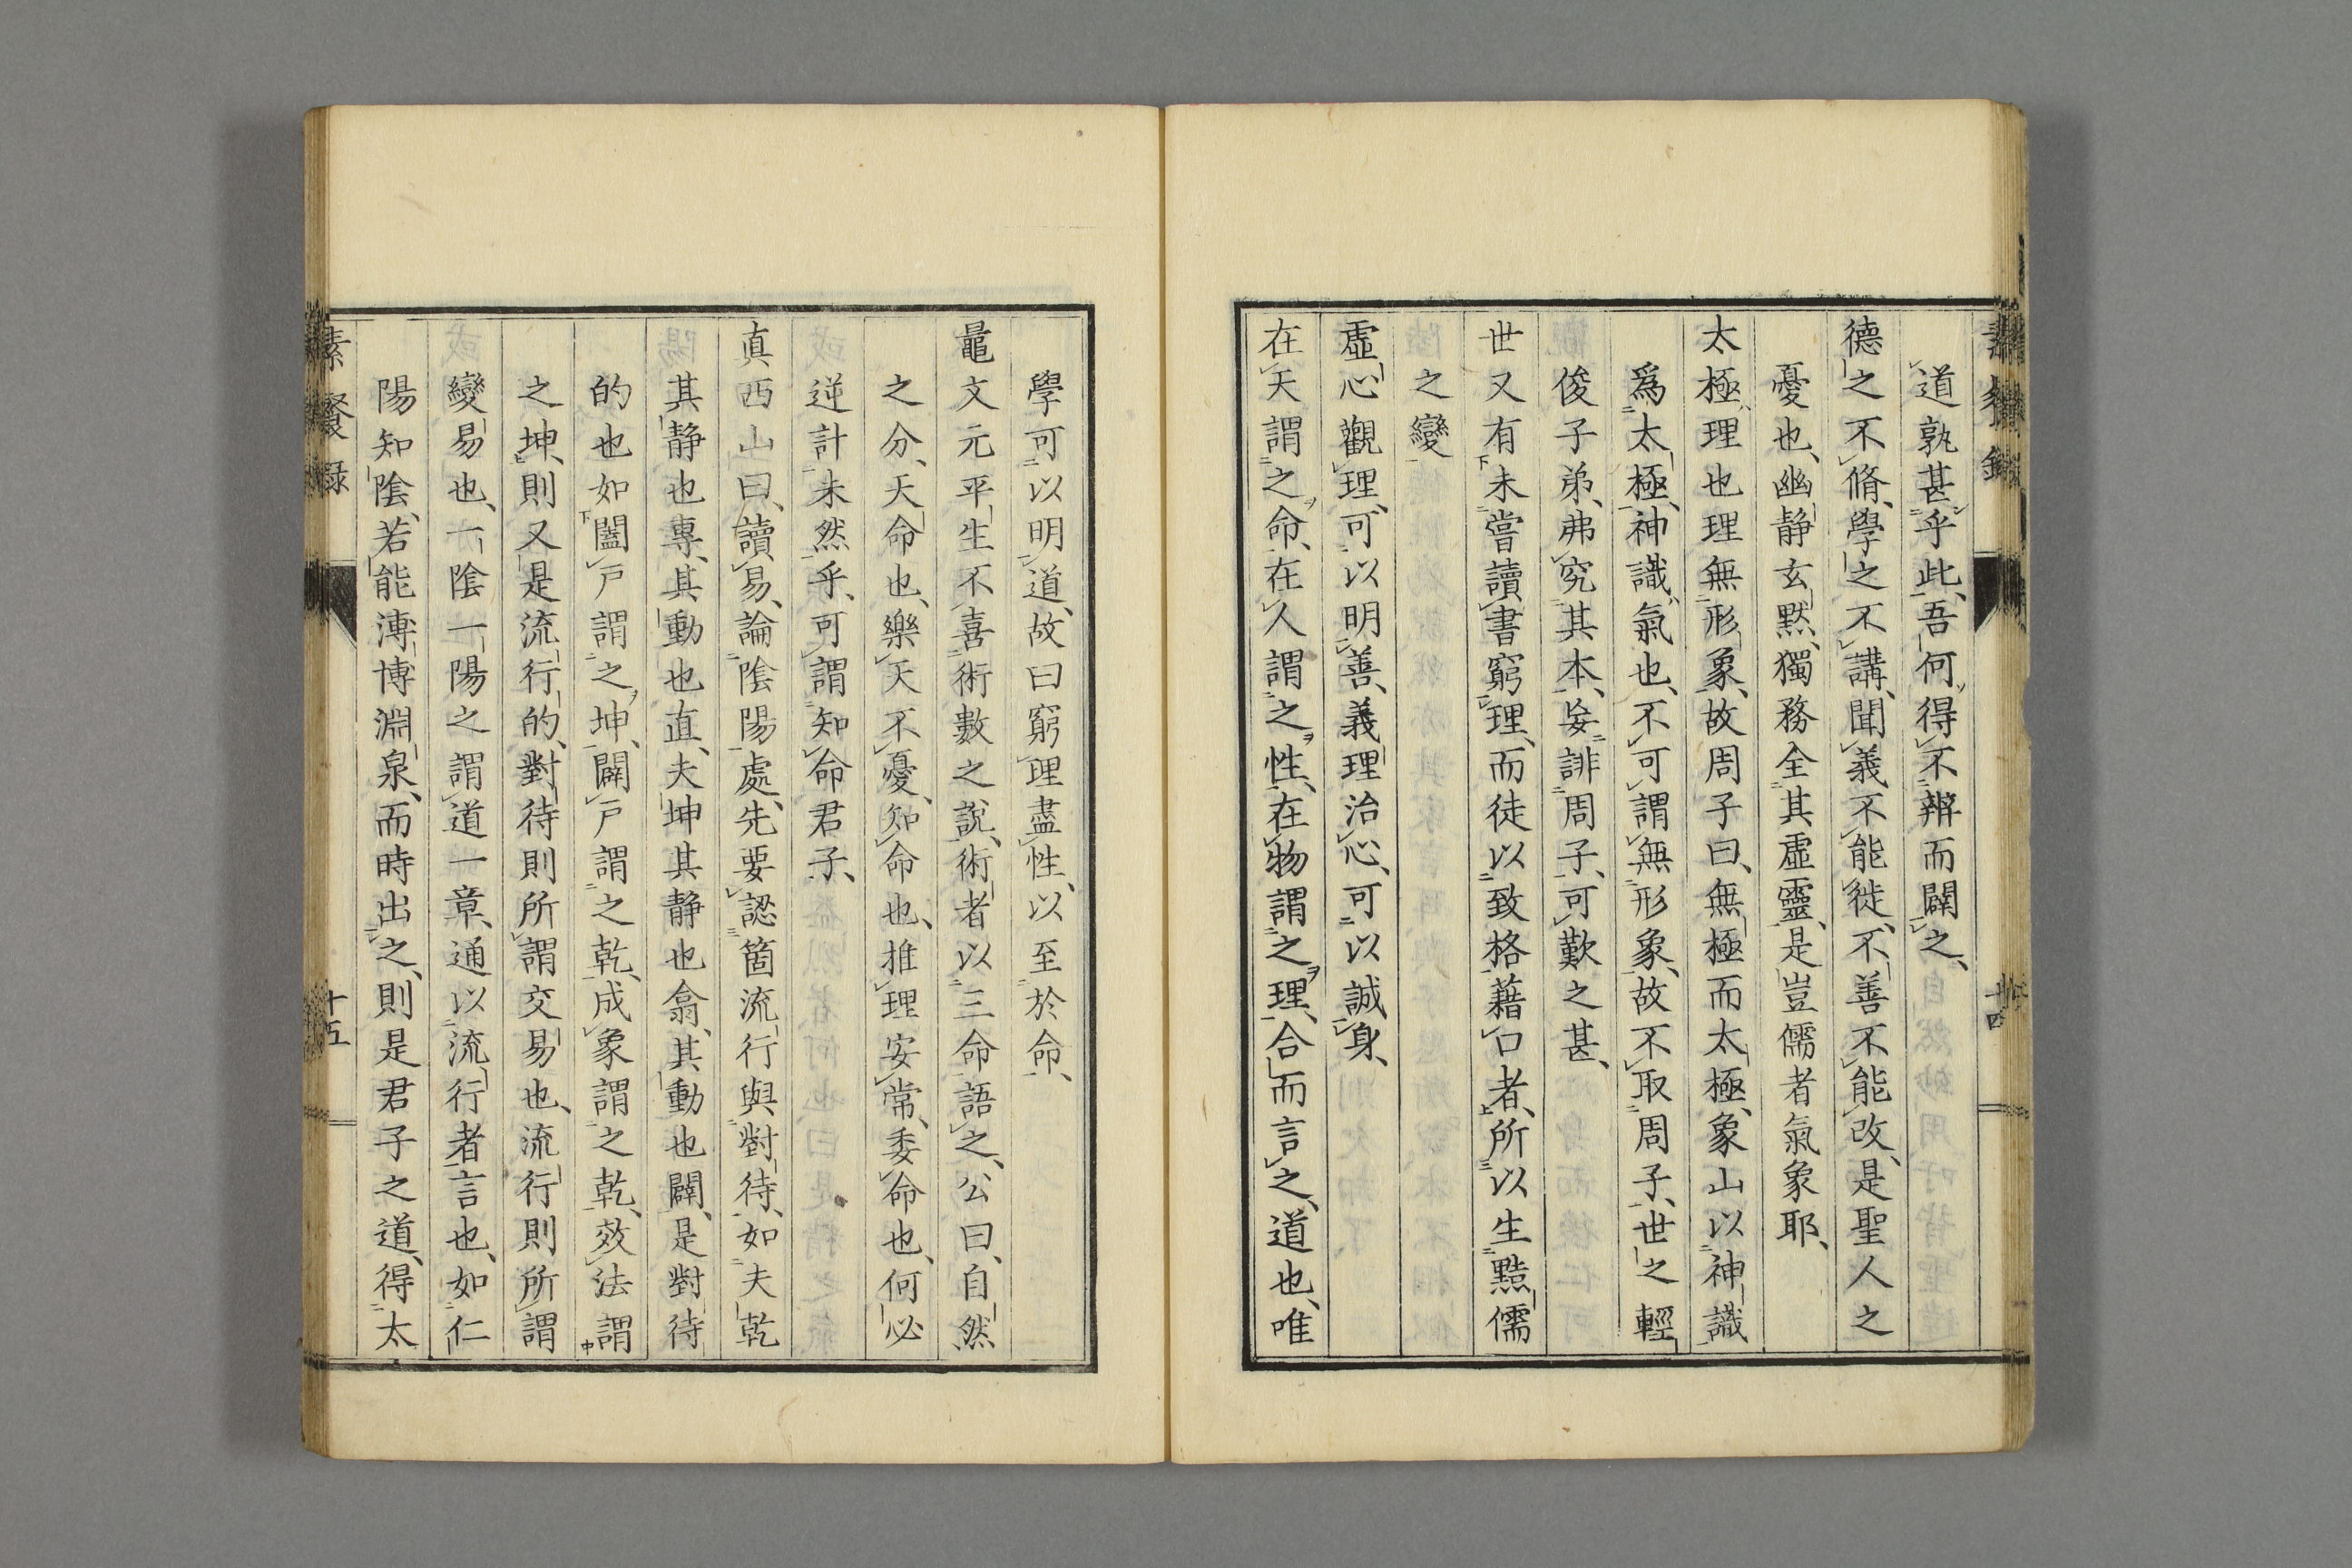 道孰甚乎此、吾何得不辨而闢之、
德之不脩、學之不講、聞義不能徙、不善不能改、是聖人之
憂也、幽静玄默、獨務全其虛靈、是豈儒者氣象耶、
太極、理也理無形象、故周子曰、無極而太極、象山以神識
爲太極、神識、氣也、不可謂無形象、故不取周子、世之輕
俊子弟、弗究其本、妄誹周子、可歎之甚、
世又有未嘗讀書窮理、而徒以致格藉口者、所以生點儒
之變
虛心觀理、可以明善、義理治心、可以誠身、
在天謂之命、在人謂之性、在物謂之理、合而言之、道也、唯
學可以明道、故曰窮理盡性、以至於命、
鼂文元平生不喜術數之説、術者以三命語之、公曰、自然
之分、天命也、樂天不憂、知命也、推理安常、委命也、何必
逆計未然乎、可謂知命君子、
真西山曰、讀易、論陰陽處、先要認箇流行與對待、如夫乾
其静也專、其動也直、夫坤其静也翕、其動也闢、是對待
的也如闔戸謂之坤、闢戸謂之乾、成象謂之乾、效法謂
之坤、則又是流行的、對待則所謂交易也、流行則所謂
變易也、一陰一陽之謂道一章、通以流行者言也、如仁
陽知陰、若能溥博淵泉、而時出之、則是君子之道、得太
素餐録
十五